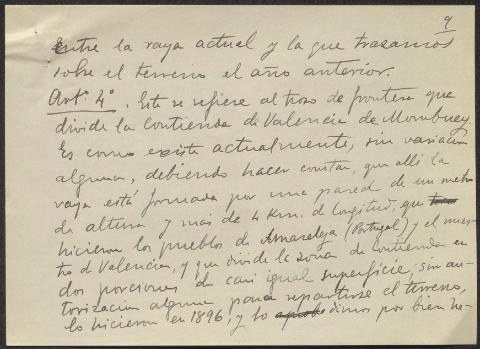 9
Entre la raya actual y la que trazamos
sobre el terreno el año anterior.
Art.º 4º. Este se refiere al trozo de frontera que
divide la Contienda de Valencia de Mombuey.
Es como existe actualmente, sin variación
alguna, debiendo hacer constar, que allí la
raya está formada por una pared de un metro
de altura y más de 4 Km. de longitud, que
hicieron los pueblos de Amareleja (Portugal) y el nues-
tro de Valencia, y que divide la zona de Contienda en
dos porciones de casi igual superficie; sin au-
torización alguna para repartirse el terreno,
lo hicieron en 1896, y lo dimos por bien he-